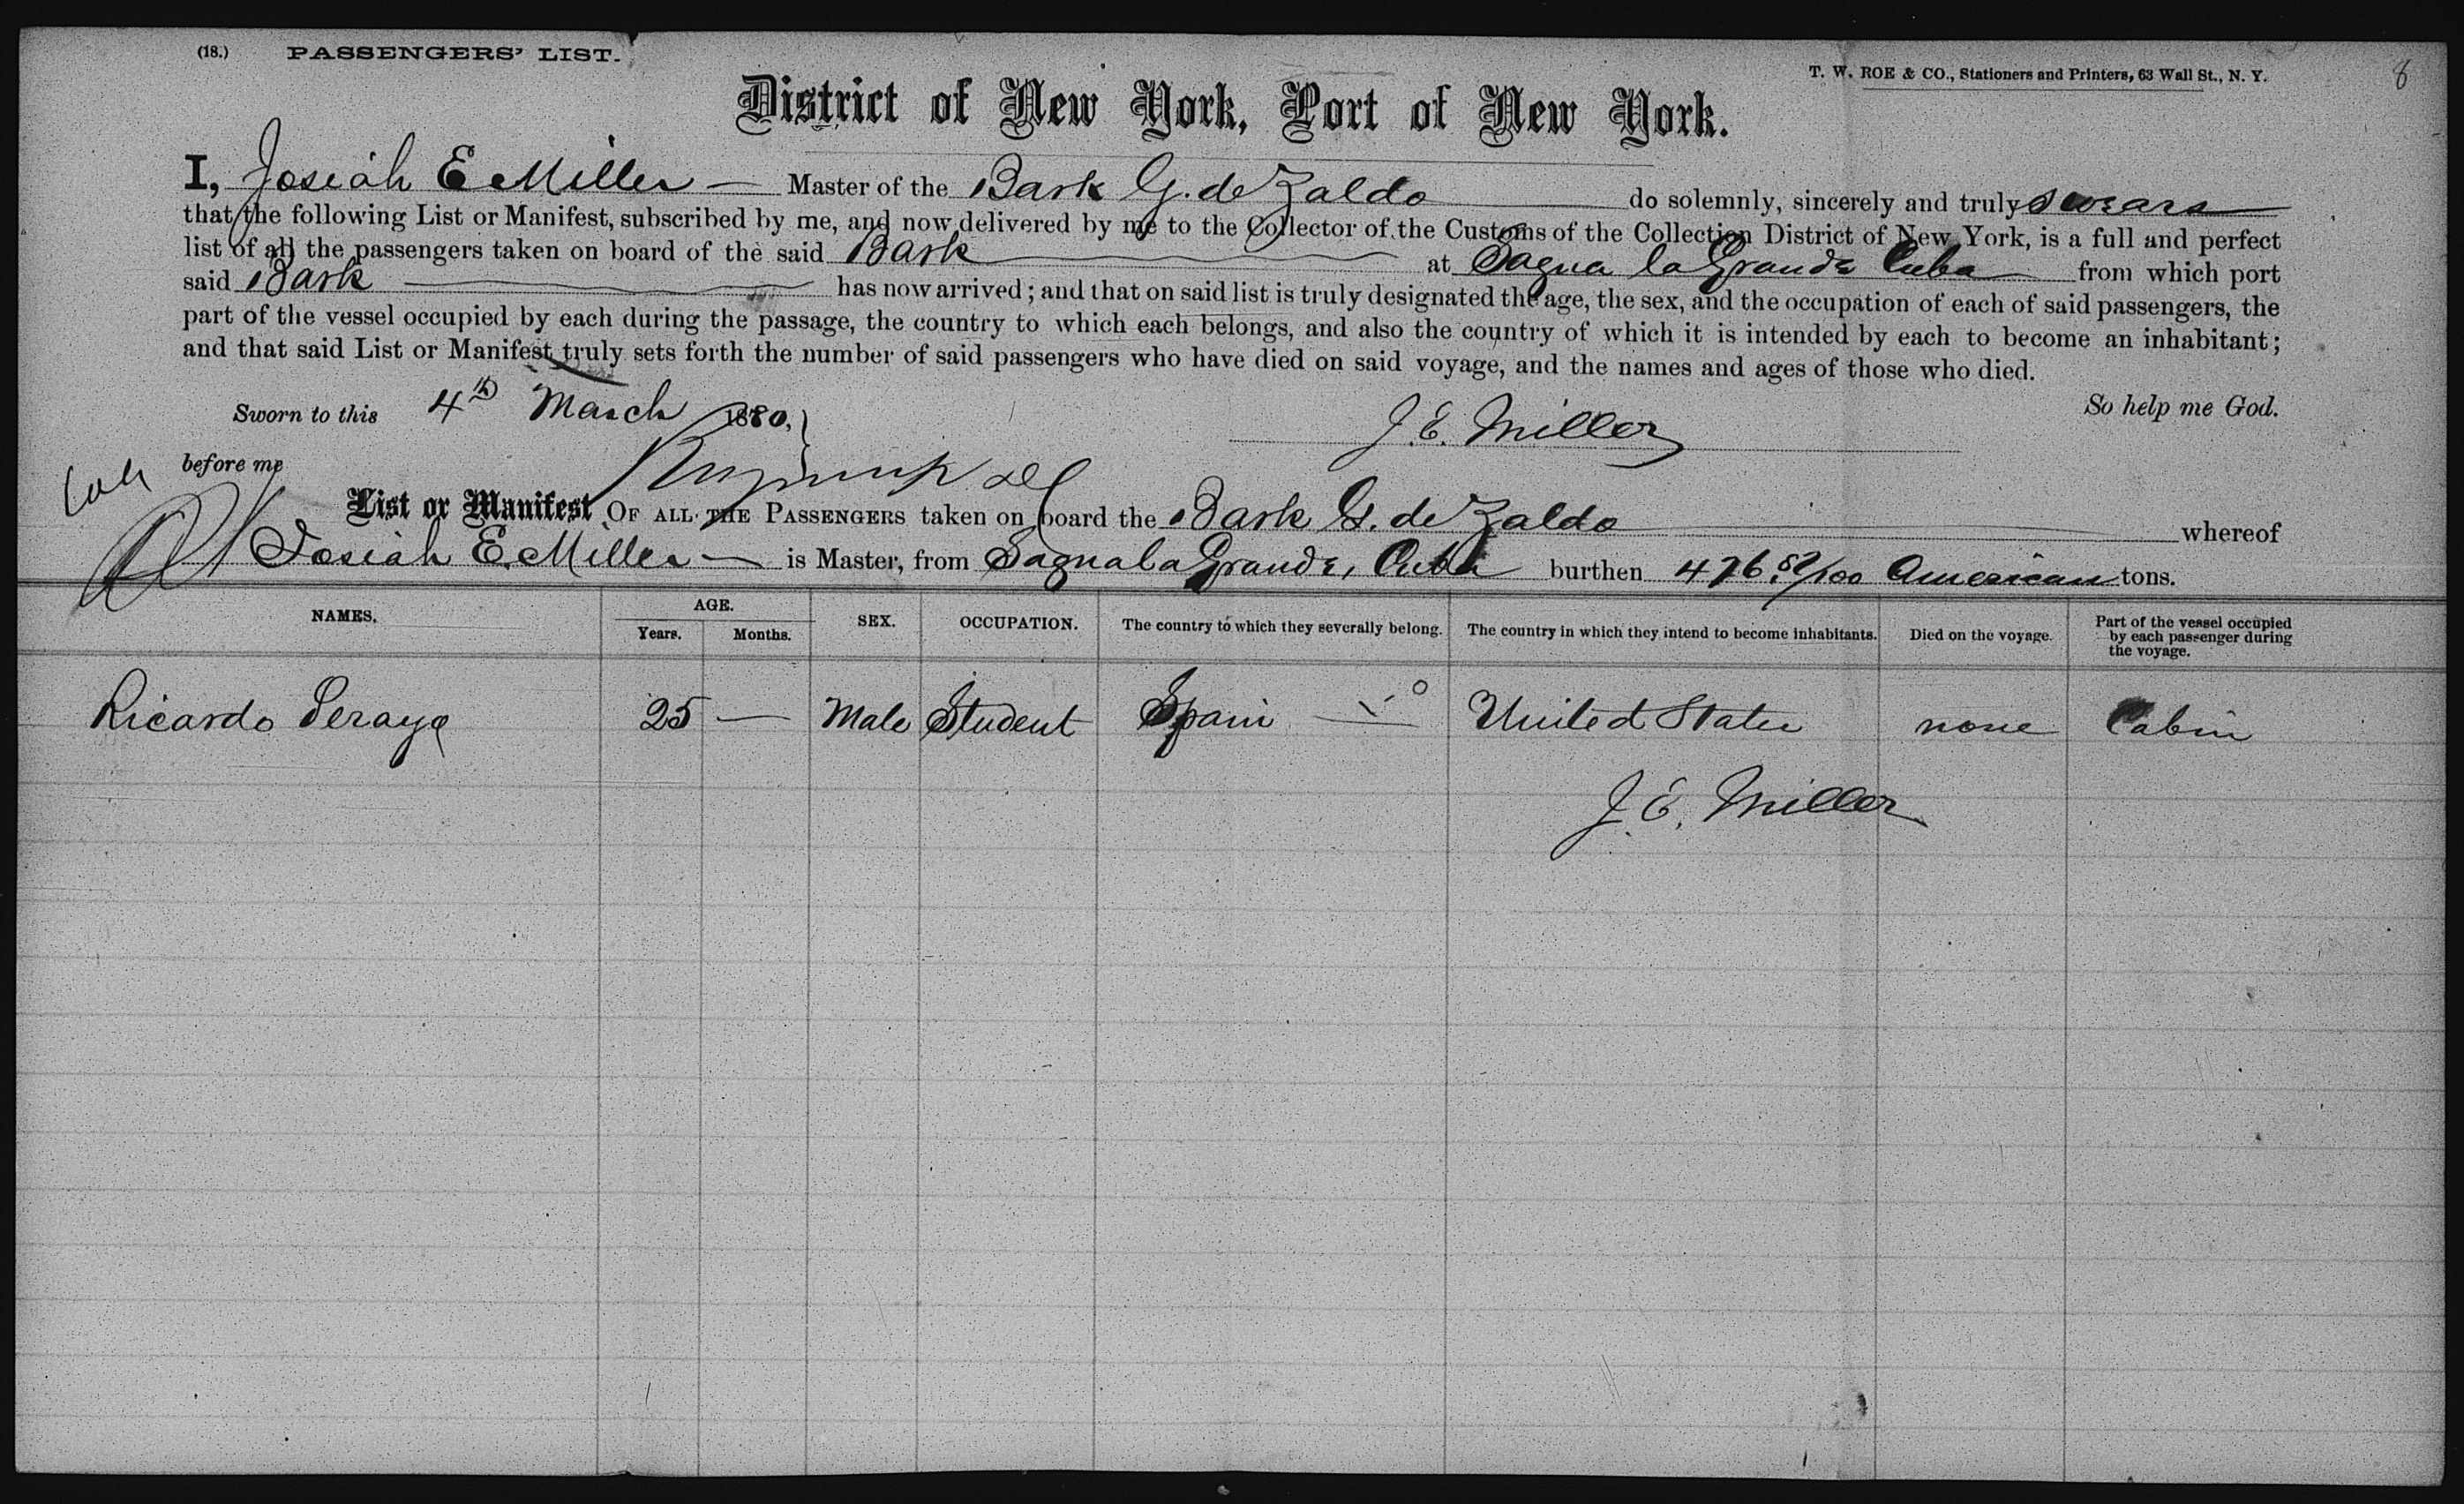 (18.) PASSENGERS' LIST.
T. W. ROE & CO., Stationers and Printers, 63 Wall St., N. Y.
8
District of New York, Port of New York.
I, Josiah E Miller — Master of the Bark G. de Zaldo do solemnly, sincerely and truly swear
that the following List or Manifest, subscribed by me, and now delivered by me to the Collector of the Customs of the Collection District of New York, is a full and perfect
list of all the passengers taken on board of the said Bark at Sagua la Grande Cuba from which port
said Bark has now arrived; and that on said list is truly designated the age, the sex, and the occupation of each of said passengers, the
part of the vessel occupied by each during the passage, the country to which each belongs, and also the country of which it is intended by each to become an inhabitant;
and that said List or Manifest truly sets forth the number of said passengers who have died on said voyage, and the names and ages of those who died.
Sworn to this 4th March 1880,
So help me God.
J. E. Miller
before me
List or Manifest OF ALL THE PASSENGERS taken on board the Bark G. de Zaldo whereof
Josiah E. Miller — is Master, from Sagua la Grande, Cuba burthen 476. 82/100 American tons.
NAMES. AGE. Years. Months. SEX. OCCUPATION. The country to which they severally belong. The country in which they intend to become inhabitants. Died on the voyage. Part of the vessel occupied by each passenger during the voyage.
Ricardo Peraya 25 — Male Student Spain United States none Cabin
J. E. Miller